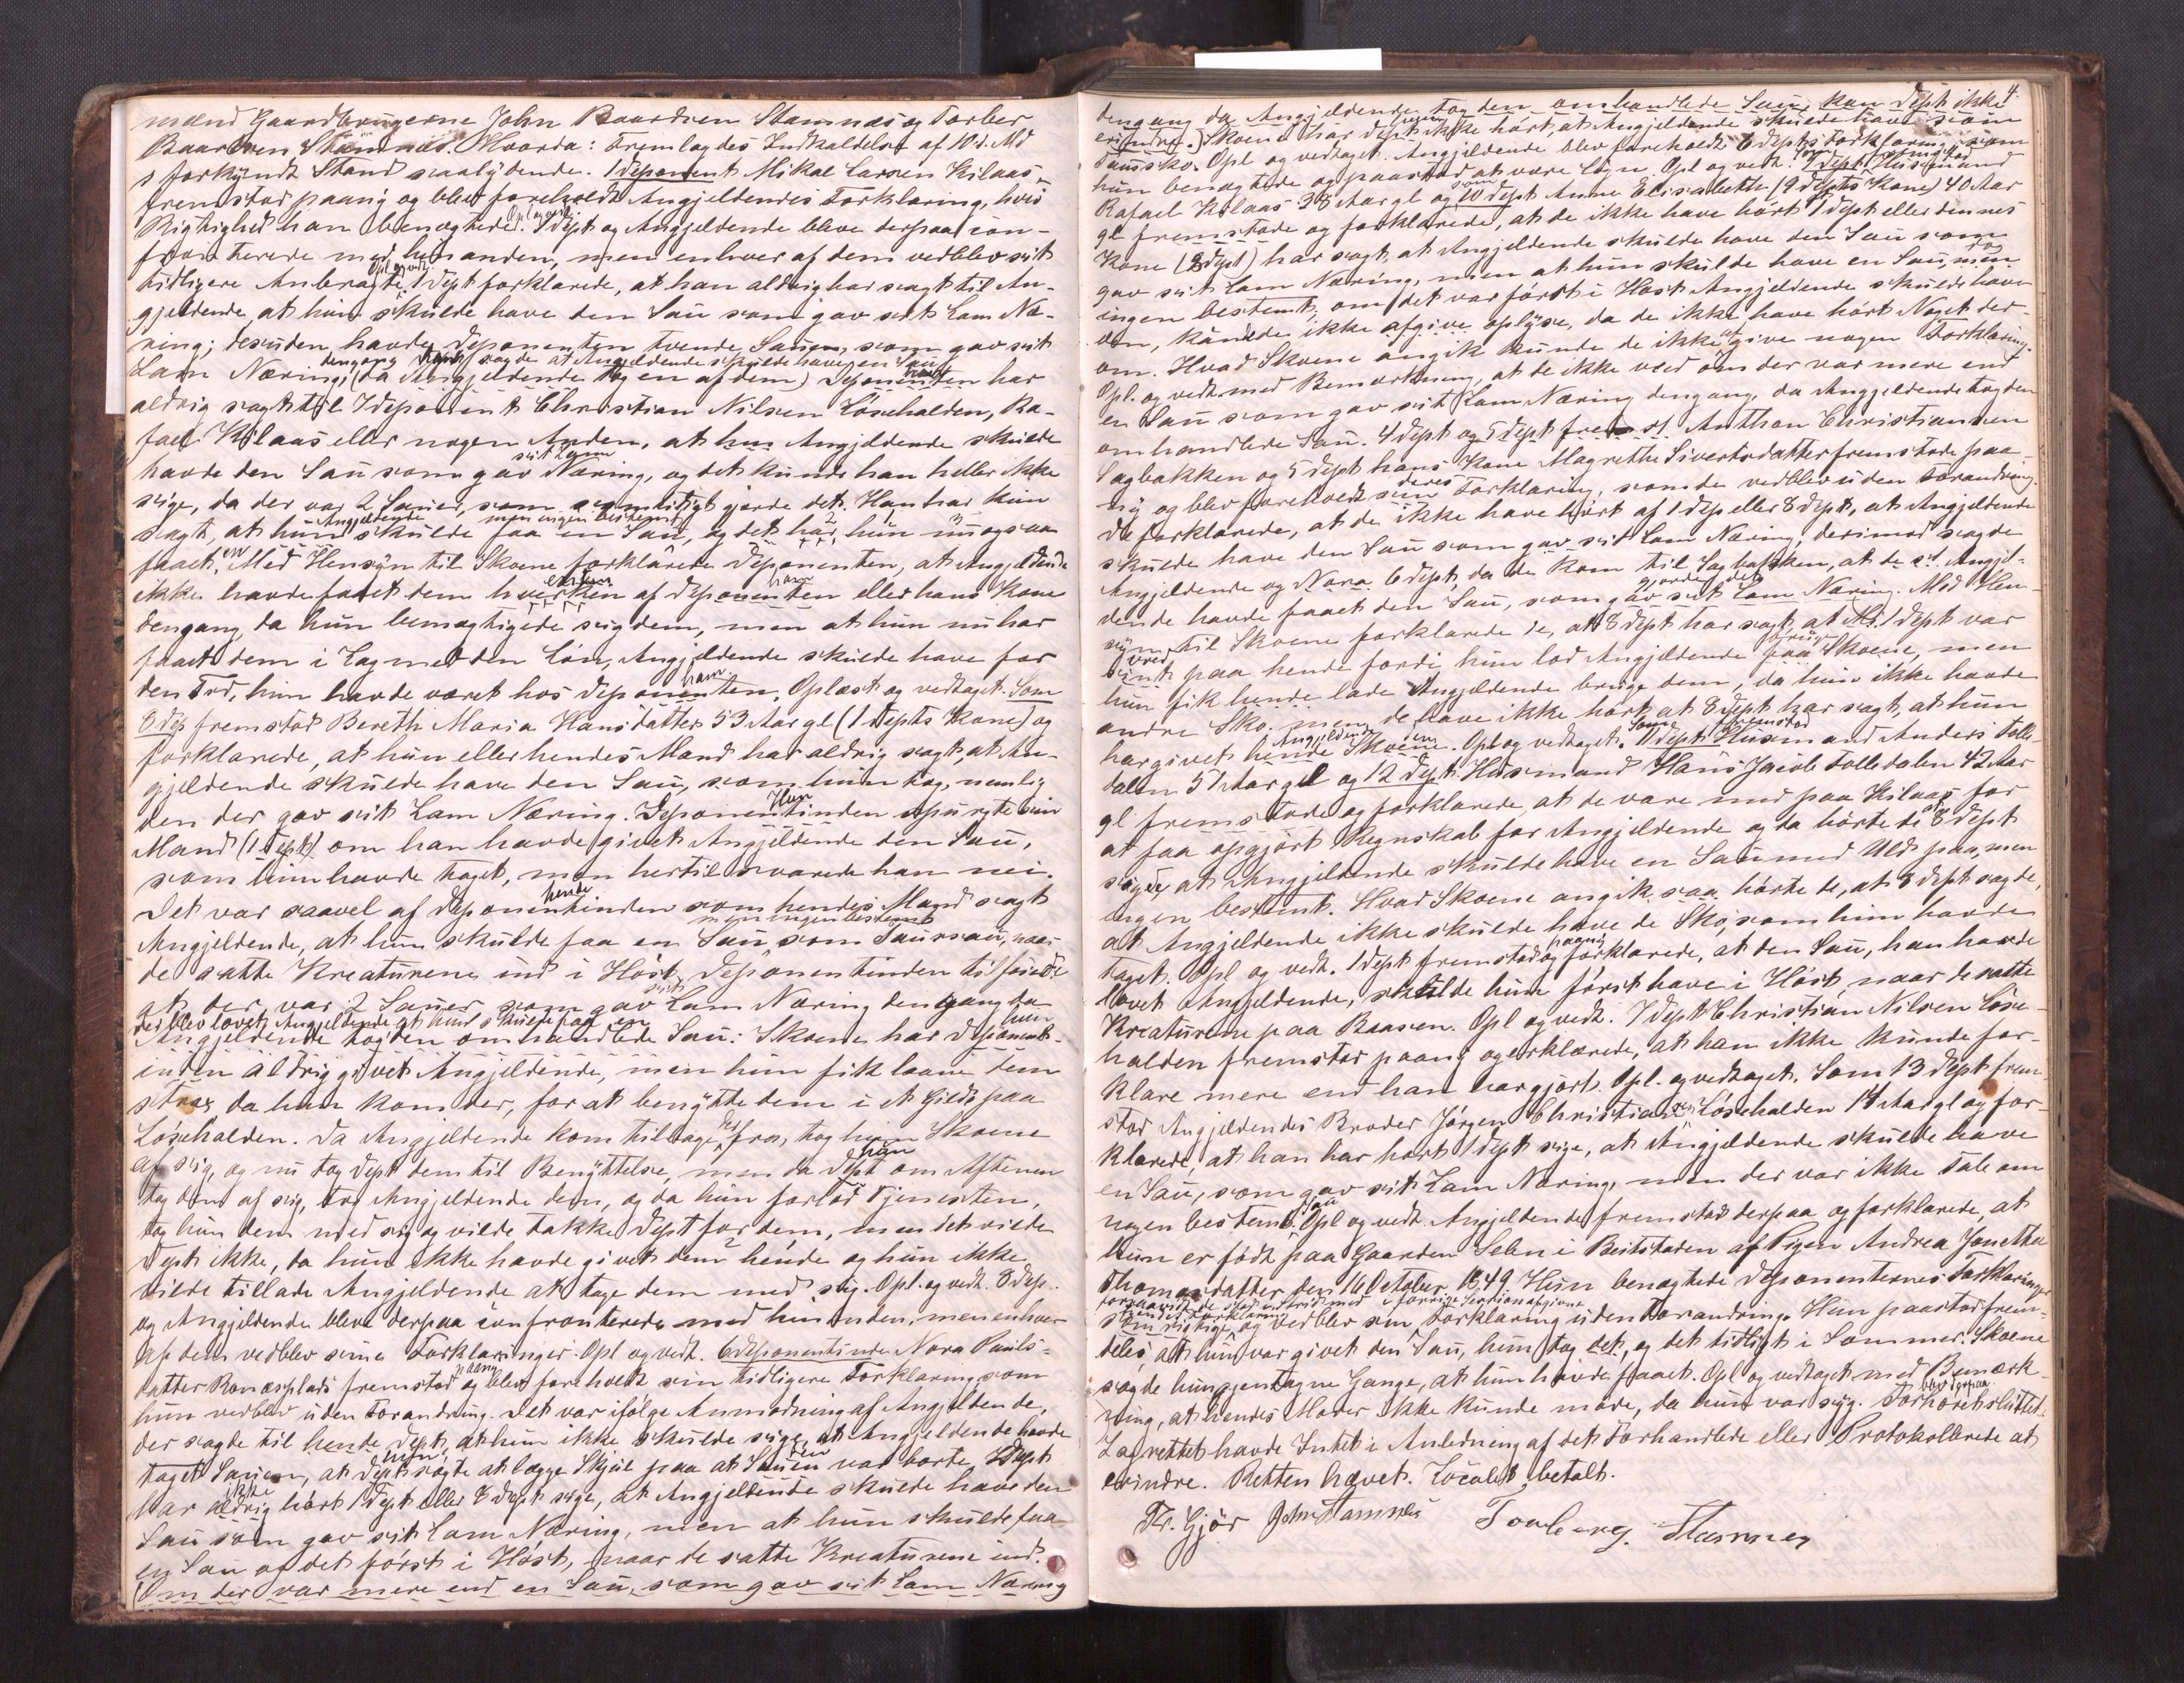 mænd Gaardbrugerne John Baardsen Stamnæs og Torber
Baardsen Stamnæs. Hvorda: Fremlagdes Indkaldelse af 10 d. Md
i forkyndt Stand saalydende. 1 deponent Mikal Larsen Kilaas
fremstod paany og blev foreholdt Angjeldendes Forklaring, hvis
Rigtighed han benægtede. Opl og vedt. 1 dept og Angjeldende bleve derpaa con-
fronterede med hinanden, men enhver af dem vedblev sit
tidligere Anbragte. Opl og vedt. 1 dept forklarede, at han aldrig har sagt til An-
gjeldende, at hun skulde have den Sau som gav sit Lam Næ-
ring; desuden havde Deponenten tvende Sauer, som gav sit
dengang han sagde at Angjeldende skulde have en Sau
Lam Næring, (da Angjeldende tog en af dem) Deponenten har
aldrig sagt til 7 deponent Christian Nilsen Løsehalden, Ra-
fael Kilaas eller nogen Anden, at hun Angjeldende skulde
havde den Sau som gav sit Lam Næring, og det kunde han heller ikke
sige, da der var 2 Sauer, som samtidigt gjorde det. Han har kun
Angjeldende men ingen bestemt
sagt, at hun skulde faa en Sau, og det har hun nu ogsaa
faaet en. Med Hensyn til Skoene forklarede Deponenten, at Angjeldende
ikke havde faaet dem hverken af Deponenten ham eller hans Kone
dengang, da hun bemægtigede sig dem, men at hun nu har
faaet dem i Lag med den Løn, Angjeldende skulde have for
den Tid, hun havde været hos Deponenten ham. Oplæst og vedtaget. Som
8 dep fremstod Bereth Maria Hansdatter 53 Aar gl (1 depts Kone) og
forklarede, at hun eller hendes Mand har aldrig sagt, at An-
gjeldende skulde have den Sau, som hun tog, nemlig
den der gav sit Lam Næring. Deponentinden Hun spurgte sin
Mand (1 dept) om han havde givet Angjeldende den Sau,
som hun havde taget, men hertil svarede han nei.
Det var saavel af Deponentinden hende som hendes Mand sagt
men ingen bestemt
Angjeldende, at hun skulde faa en Sau som Saussau, naar
de satte Kreaturene ind i Høst, Deponentinden tilføiede
at der var 2 Sauer som gav sit Lam Næring dengang da
det blev lovet Angjeldende at hun skulde faa en
Angjeldende tog den omhandlede Sau: Skoene har Deponent- hun
inden aldrig givet Angjeldende, men hun fik laane dem
strax da hun kom der, for at benytte dem i et Gilde paa
Løsehalden. Da Angjeldende kom tilbage derfra, tog hun Skoene
af sig, og nu tog Dept dem til Benyttelse, men da Dept han om Aftenen
tog dem af sig, tog Angjeldende dem, og da hun forlod Tjenesten,
tog hun dem med sig og vilde takke Dept for dem, men det vilde
Dept ikke, da hun ikke havde givet dem hende og hun ikke
vilde tillade Angjeldende at tage dem med sig. Opl. og vedt. 8 Dep.
og Angjeldende bleve derpaa confronterede med hinanden, men enhver
af dem vedblev sine Forklaringer. Opl og vedt. 6 deponentinde Nora Pauls-
datter Ronæsplads fremstod paany og blev foreholdt sin tidligere Forklaring som
hun vedblev uden Forandring. Det var ifølge Anmodning af Angjeldende,
der sagde til hende Dept, at hun ikke skulde sige, at Angjeldende havde
taget Sauen, at Dept hun søgte at lægge Skjul paa at Sauen den var borte. Dept
har aldrig ikke hørt 1 Dept eller 8 Dept sige, at Angjeldende skulde have den
Sau som gav sit Lam Næring, men at hun skulde faa
en Sau og det først i Høst, naar de satte Kreaturene ind.
(Om der var mere end en Sau, som gav sit Lam Næring
4.
dengang da Angjeldende tog den omhandlede Sau, kan Dept ikke
erindre.) Skoene har Dept hun ikke hørt, at Angjeldende skulde have som
Saussko. Opl og vedtaget. Angjeldende blev foreholdt 6 Depts Forklaring, som
hun benægtede og paastod at være Løgn. Opl og vedt. Som 9 Dept fremstod Husmand
Rafael Kilaas 38 Aar gl og som 10 Dept Anne Elisabeth (9 depts Kone) 40 Aar
gl fremstode og forklarede, at de ikke have hørt 1 Dept eller dennes
Kone (8 dept) har sagt, at Angjeldende skulde have den Sau som
gav sit Lam Næring, men at hun skulde have en Sau, men dog
ingen bestemt, om det var først i Høst Angjeldende skulde have
den, kunde de ikke afgive oplyse, da de ikke have hørt Noget der-
om. Hvad Skoene angik kunde de ikke afgive nogen Forklaring.
Opl. og vedt med Bemærkning, at de ikke veed om der var mere end
en Sau som gav sit Lam Næring dengang, da Angjeldende tog den
omhandlede Sau. 4 Dept og 5 Dept frem st Anthon Christiansen
Sagbakken og 5 dept hans Kone Magrethe Sivertsdatter fremstode paa-
ny og blev foreholdt sin deres Forklaring, som de vedblev uden Forandring.
De forklarede, at de ikke have hørt af 1 dep eller 8 dept, at Angjeldende
skulde have den Sau som gav sit Lam Næring, derimod sagde
Angjeldende og Nora 6 dept, da de kom til Sagbakken, at de st Angjel-
dende havde faaet den Sau, som gav sit gjorde det Lam Næring. Med Hen-
syn til Skoene forklarede de, at 8 dept har sagt, at 1 dept var
sint vred paa hende fordi hun lod Angjeldende faa bruge Skoene, men
hun fik hende lade Angjeldende bruge dem, da hun ikke havde
andre Sko, men de have ikke hørt at 8 dept har sagt, at hun
har givet hende Angjeldende Skoene dem. Opl og vedtaget. Som 11 dept fremstod Husmand Anders Folle-
dalen 57 Aar gl og 12 dept Husmand Hans Jacob Folledalen 42 Aar
gl fremstode og forklarede, at de vare med paa Kilaas for
at faa opgjort Regnskab for Angjeldende og da hørte de at 8 dept
sagde, at Angjeldende skulde have en Sau med Uld paa, men
ingen bestemt. Hvad Skoene angik, saa hørte de, at 8 dept sagde,
at Angjeldende ikke skulde have de Sko, som hun havde
taget. Opl og vedt. 1 Dept fremstod paany og forklarede, at den Sau, han havde
lovet Angjeldende, skulde hun først have i Høst, naar de satte
Kreaturene paa Baasen. Opl og vedt. 7 Dept Christian Nilsen Løse-
halden fremstod paany og erklærede, at han ikke kunde for-
klare mere end han har gjort. Opl. og vedtaget. Som 13 Dept frem-
stod Angjeldendes Broder Jørgen Christiansen Løsehalden 14 Aar gl og for-
klarede, at han har hørt 1 Dept sige, at Angjeldende skulde have
en Sau, som gav sit Lam Næring, men der var ikke Tale om
nogen bestemt Sau. Opl og vedt. Angjeldende fremstod derpaa og forklarede, at
hun er født paa Gaarden Selen i Beitstaden af Pigen Andrea Janetha
Thomasdatter den 16 October 1849. Hun benægtede Deponenternes Forklaringer
forsaavidt de stod i Strid med i forrige Session afgivne
hendes Forklaring
sin rigtige og vedblev sin Forklaring uden Forandring. Hun paastod frem-
deles, at hun var givet den Sau, hun tog det, og det tidligt i Sommer. Skoene
sagde hun gjentagne Gange, at hun havde faaet. Opl og vedtaget med Bemærk-
ning, at hendes Moder ikke kunde møde, da hun var syg. Forhøret blev derpaa sluttet.
Lagrettet havde Intet i Anledning af det Forhandlede eller Protokollerede at
erindre. Retten hævet. Localet betalt.
Fr. Gjør John Stamnes Torberg. Stamnes